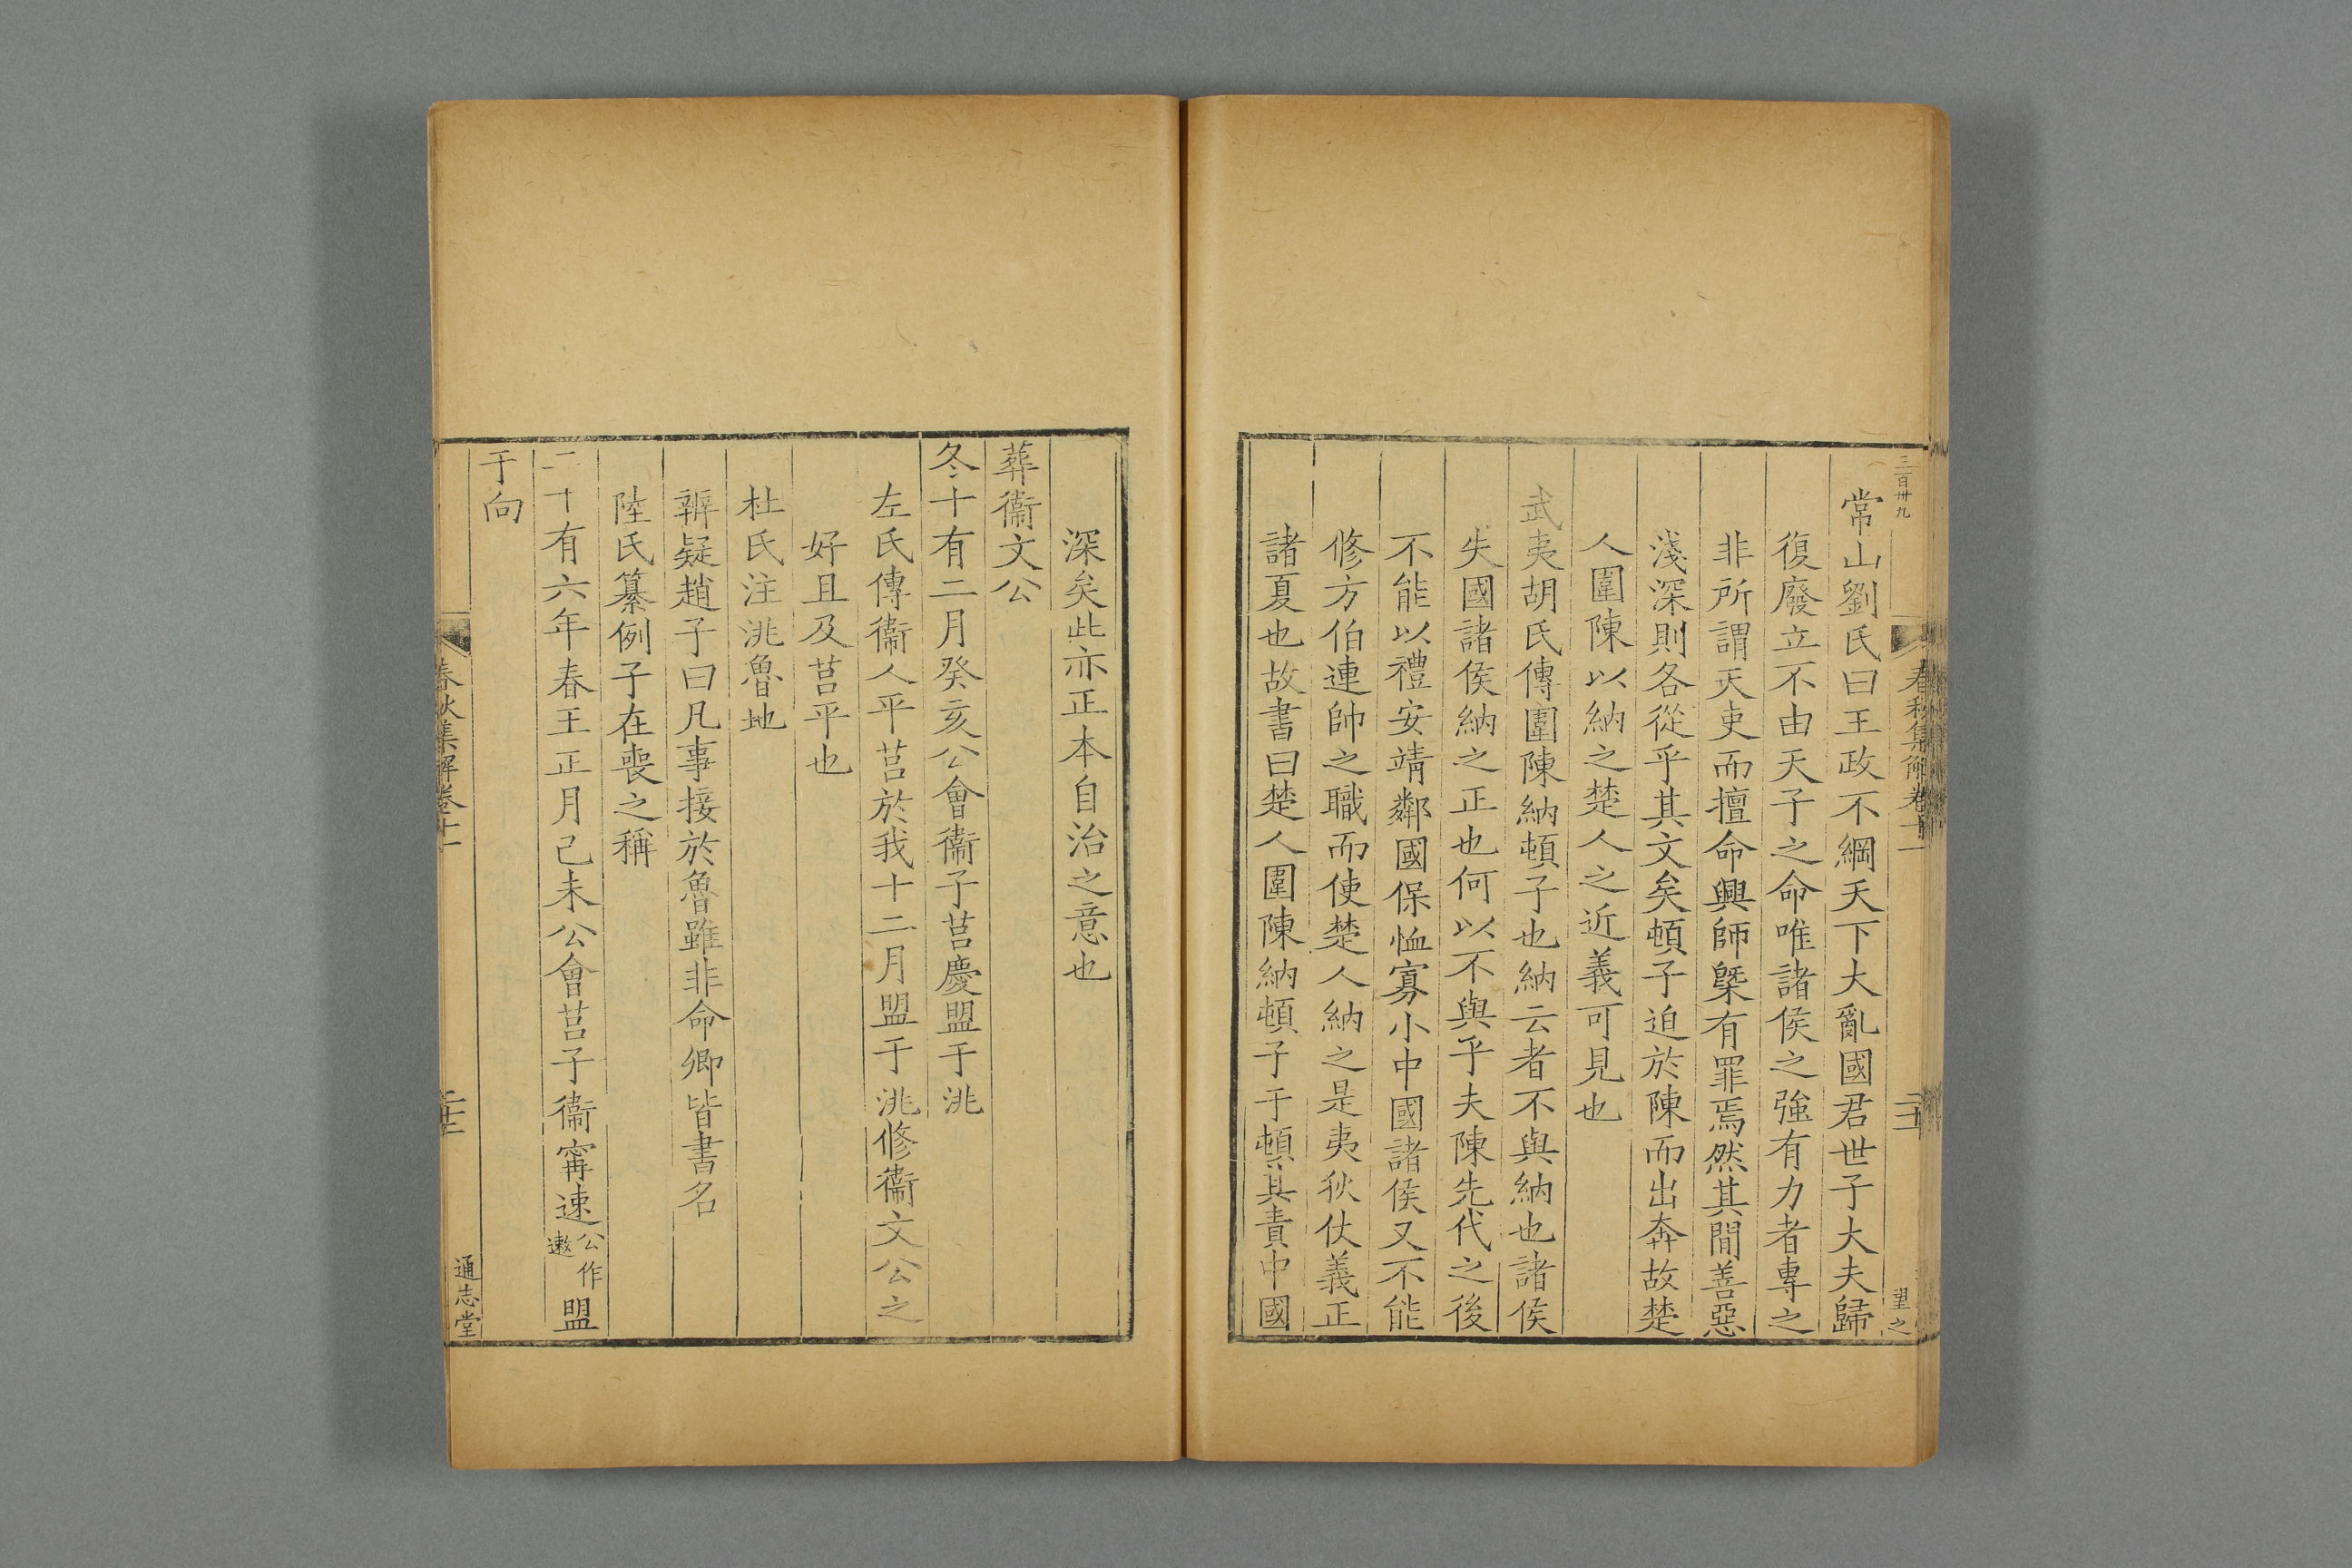 三百卅九
春秋集解卷十一
二十
望之
常山劉氏曰王政不綱天下大亂國君世子大夫歸
復廢立不由天子之命唯諸侯之強有力者專之
非所謂天吏而擅命興師槩有罪焉然其間善惡
淺深則各從乎其文矣頓子迫於陳而出奔故楚
人圍陳以納之楚人之近義可見也
武夷胡氏傳圍陳納頓子也納云者不與納也諸侯
失國諸侯納之正也何以不與乎夫陳先代之後
不能以禮安靖鄰國保恤寡小中國諸侯又不能
修方伯連帥之職而使楚人納之是夷狄仗義正
諸夏也故書曰楚人圍陳納頓子于頓其責中國
深矣此亦正本自治之意也
葬衞文公
冬十有二月癸亥公會衞子莒慶盟于洮
左氏傳衞人平莒於我十二月盟于洮修衞文公之
好且及莒平也
杜氏注洮魯地
辨疑趙子曰凡事接於魯雖非命卿皆書名
陸氏纂例子在喪之稱
二十有六年春王正月己未公會莒子衞甯速公作遬盟
于向
春秋集解卷十一
通志堂